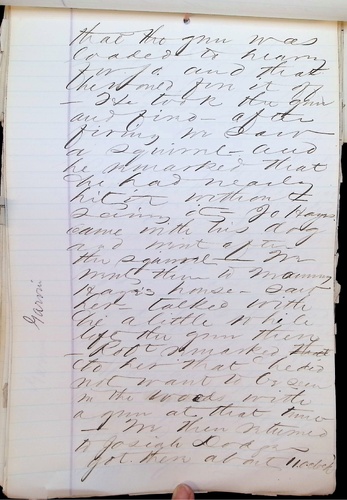 that the gun was
loaded to heavy
for ja and that
then ed fire it of
- He took the gun
and fired - after
firing we saw
a squirrel - and
he remarked that
he had nearly
hit it without
seeing it - Jo Hays
came with his dog
and went after
the squirrel - We
went then to Mammy
Hays's house - saw
her - talked with
her a little while
left the gun there
- Robt remarked
to her that he did
not want to be seen
in the woods with
a gun at that time
- We then returned
to Josiah
got there about 11 oclock
Garvin